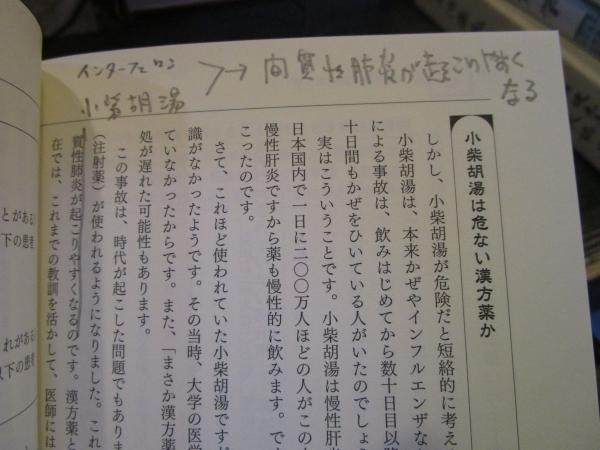 インターフェロン
小柴胡湯
>→間質性肺炎が起こりやすく
なる
小柴胡湯は危ない漢方薬か
しかし、小柴胡湯が危険だと短絡的に考え
小柴胡湯は、本来かぜやインフルエンザな
による事故は、飲みはじめてから数十日目以降
十日間もかぜをひいている人がいたのでしょう
実はこういうことです。小柴胡湯は慢性肝炎
日本国内で一日に二〇〇万人ほどの人がこの
慢性肝炎ですから薬も慢性的に飲みます。で
こったのです。
さて、これほど使われていた小柴胡湯ですが
識がなかったようです。その当時、大学の医学
ていなかったからです。また、「まさか漢方薬
処が遅れた可能性もあります。
この事故は、時代が起こした問題でもありま
（注射薬）が使われるようになりました。これ
質性肺炎が起こりやすくなるのです。漢方薬と
在では、これまでの教訓を活かして、医師には
とがある
下の患者
れがある
以下の患者